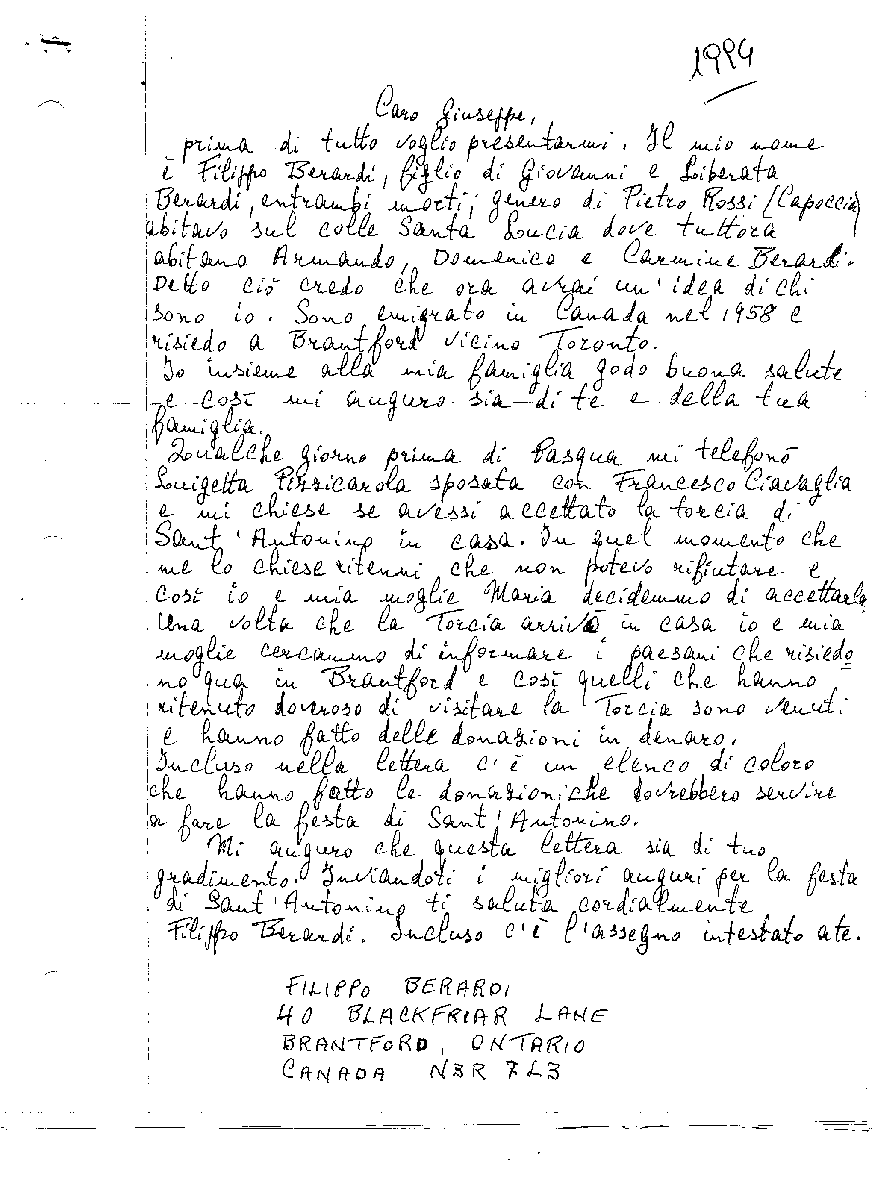 1994
Caro Giuseppe,
prima di tutto voglio presentarmi. Il mio nome
è Filippo Berardi, figlio di Giovanni e Liberata
Berardi, entrambi morti; genero di Pietro Rossi (Capoccia)
abitavo sul colle Santa Lucia dove tuttora
abitano Armando, Domenico e Carmine Berardi.
Detto ciò credo che ora avrai un'idea di chi
sono io. Sono emigrato in Canada nel 1958 e
risiedo a Brantford vicino Toronto.
Io insieme alla mia famiglia godo buona salute
e così mi auguro sia di te e della tua
famiglia.
Qualche giorno prima di Pasqua mi telefonò
Luigetta Pizzicarola sposata con Francesco Ciavaglia
e mi chiese se avessi accettato la torcia di
Sant'Antonino in casa. In quel momento che
me lo chiese ritenni che non potevo rifiutare e
così io e mia moglie Maria decidemmo di accettarla
Una volta che la Torcia arrivò in casa io e mia
moglie cercammo di informare i paesani che risiedo
no qua in Brantford e così quelli che hanno
ritenuto doveroso di visitare la Torcia sono venuti
e hanno fatto delle donazioni in denaro.
Incluso nella lettera c'è un elenco di coloro
che hanno fatto le donazioni che dovrebbero servire
a fare la festa di Sant'Antonino.
Mi auguro che questa lettera sia di tuo
gradimento. Inviandoti i migliori auguri per la festa
di Sant'Antonino ti saluta cordialmente
Filippo Berardi. Incluso c'è l'assegno intestato a te.
FILIPPO BERARDI
40 BLACKFRIAR LANE
BRANTFORD, ONTARIO
CANADA N3R 7L3